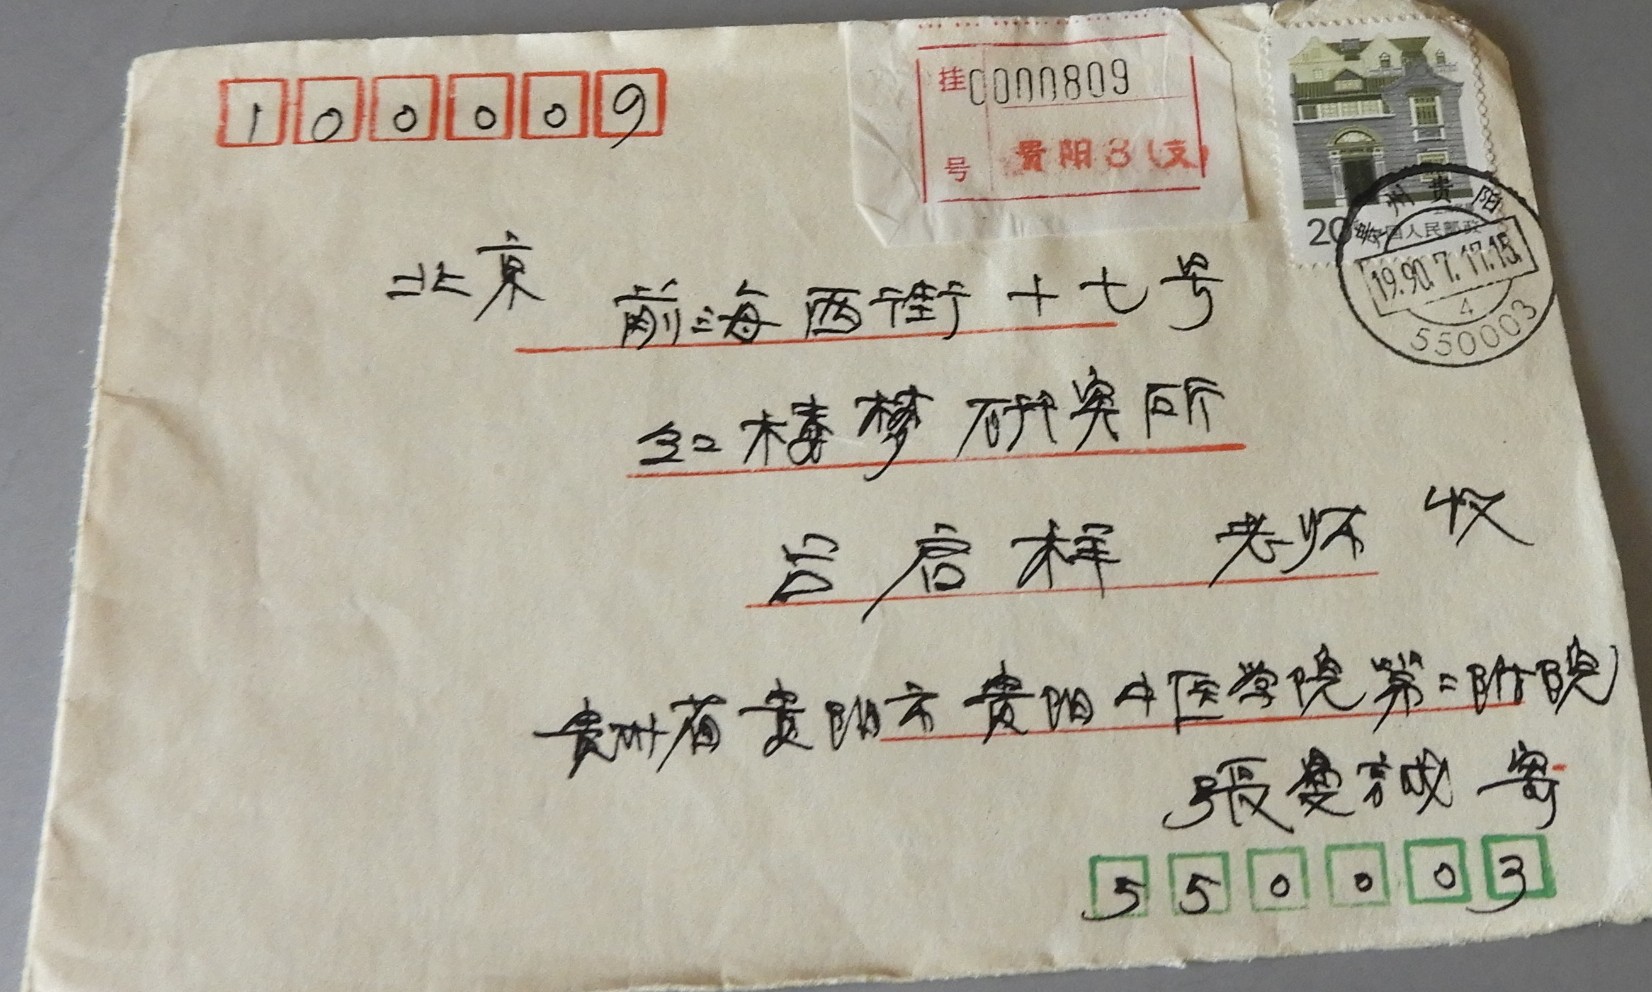 100009
挂 0000809
号 贵阳8(支)
20 中国人民邮政
贵州贵阳
19.90.7.17.15.
4
550003
北京 前海西街十七号
红楼梦研究所
吕启祥 老师 收
贵州省贵阳市贵阳中医学院第二附院
張曼诚 寄
550003